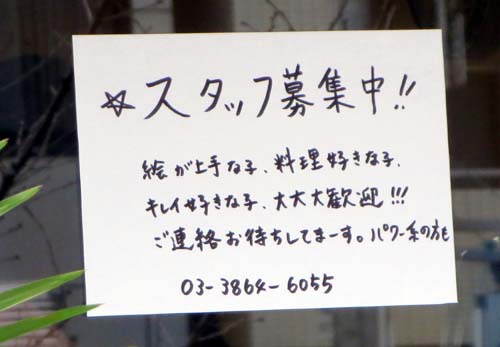 ☆スタッフ募集中!!
絵が上手な子、料理好きな子、
キレイ好きな子、大大大歓迎!!!
ご連絡お待ちしてまーす。パワー系の方も
03-3864-6055